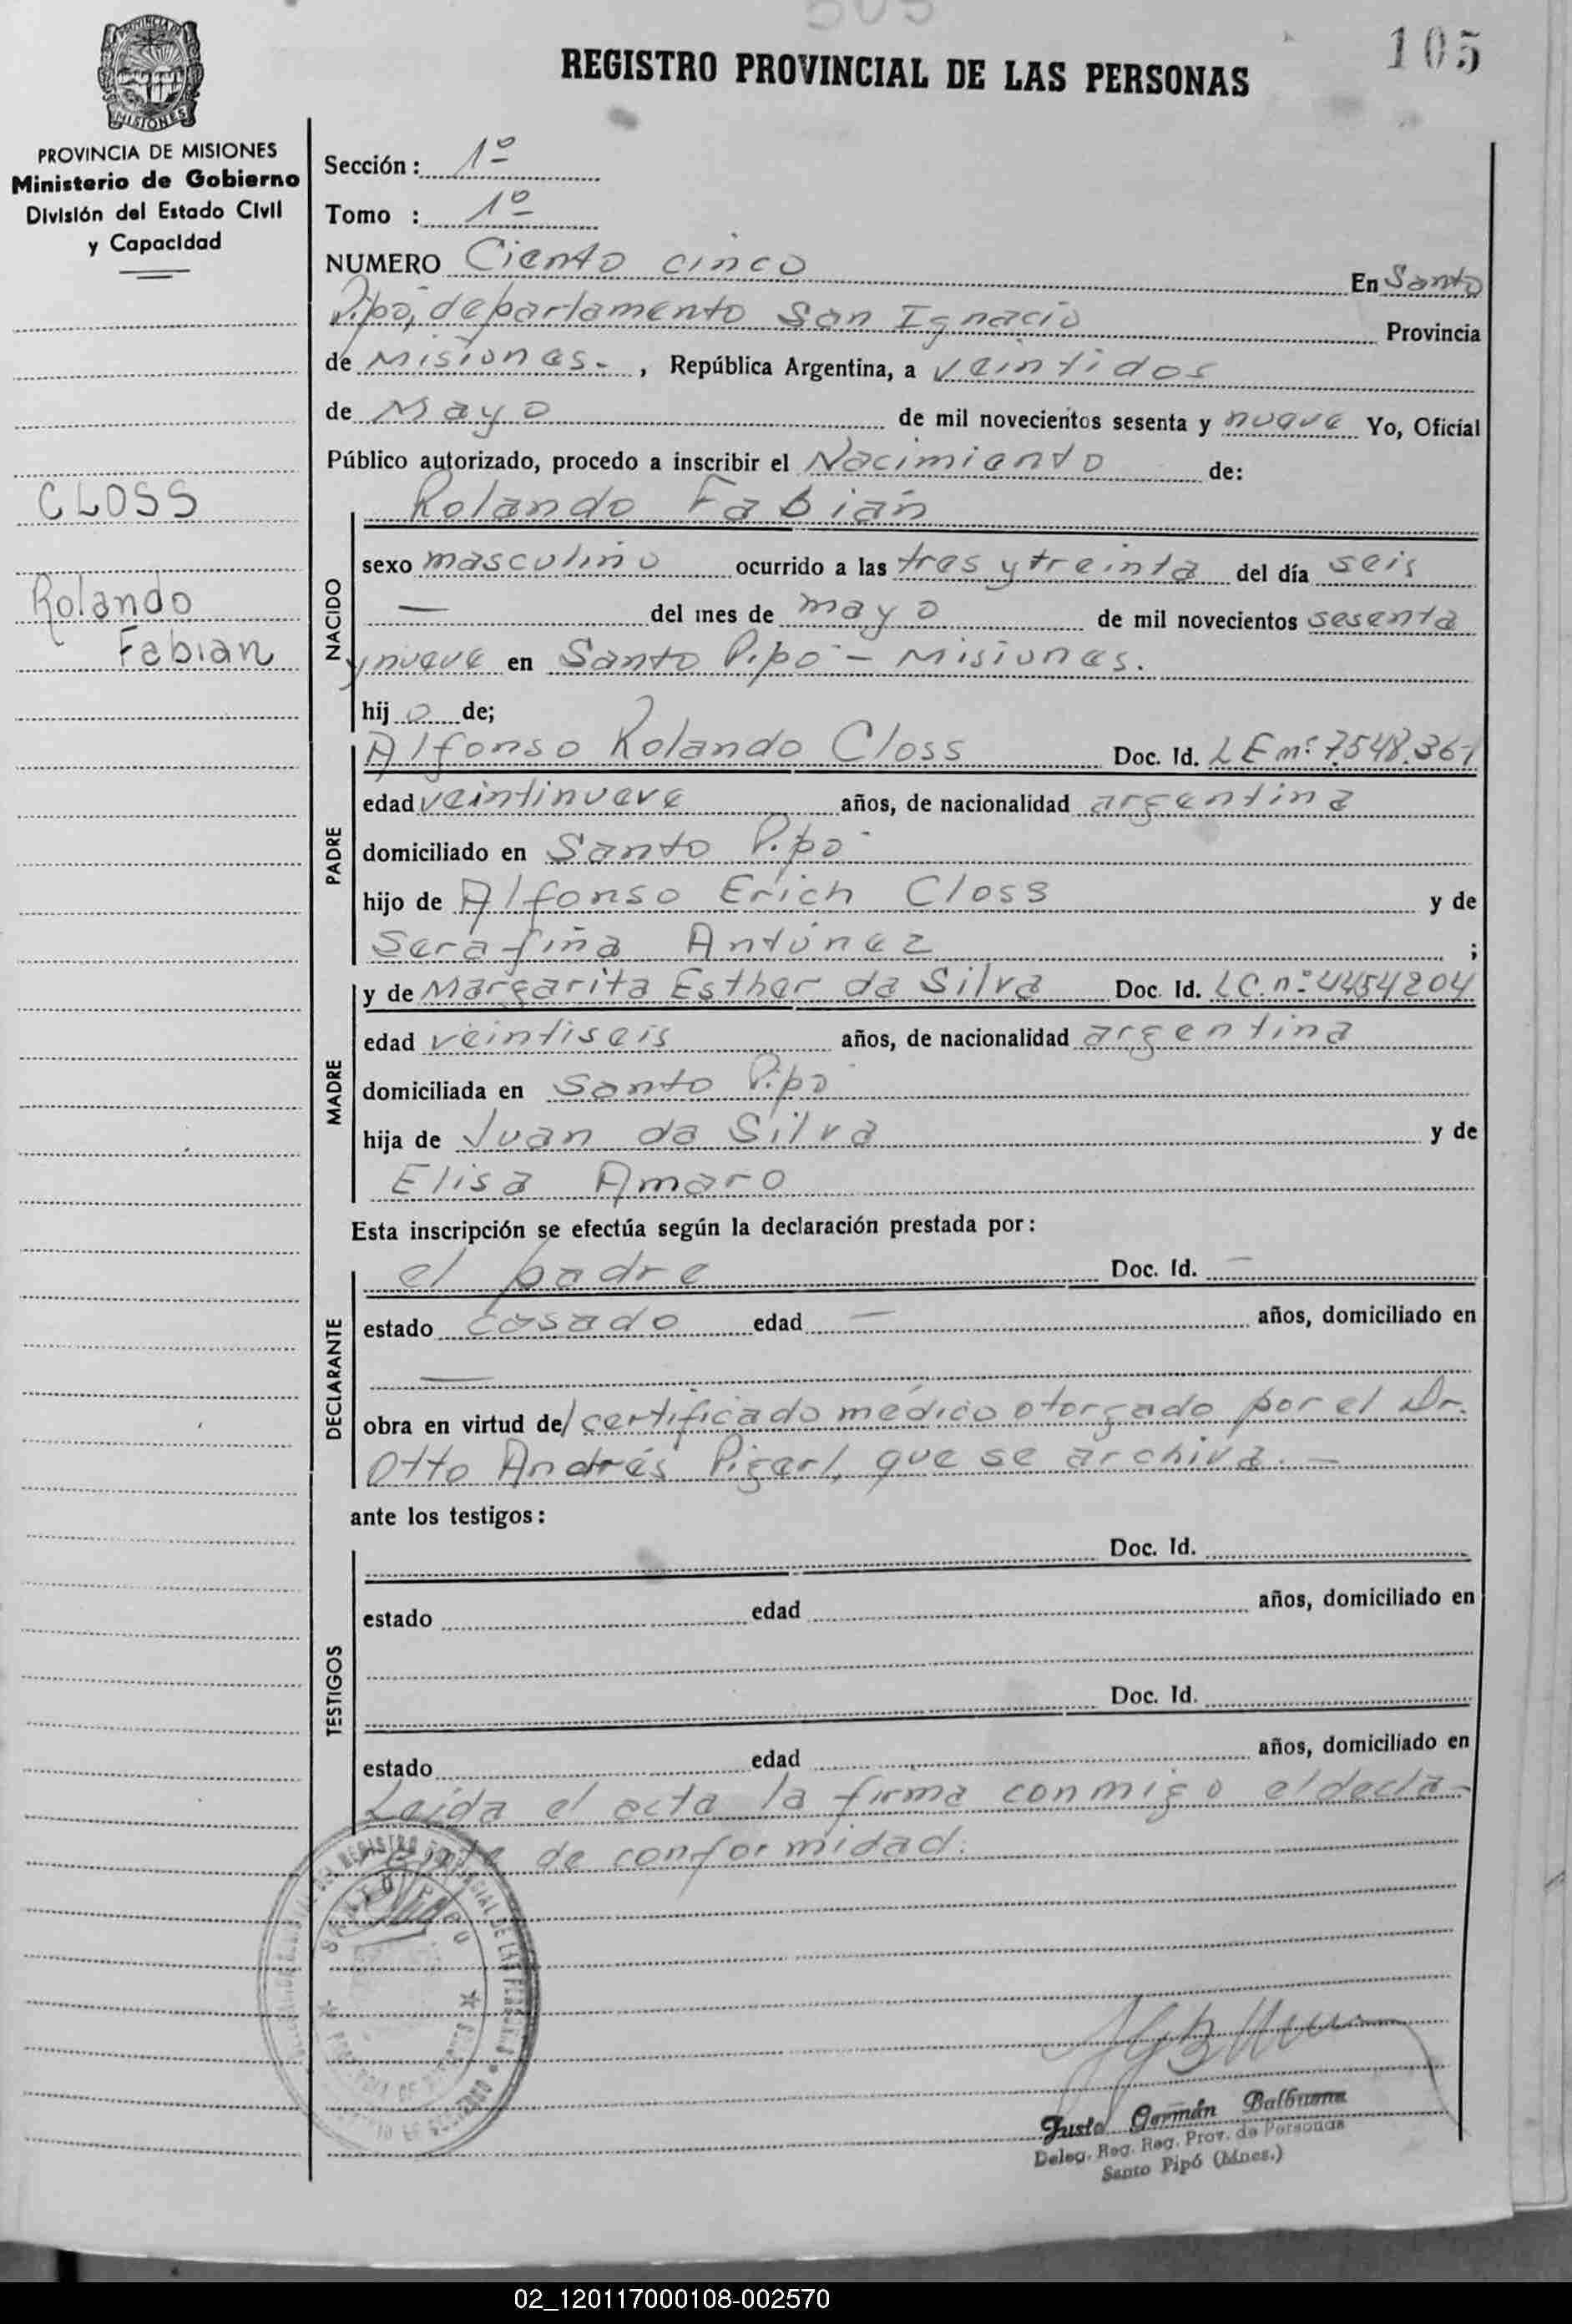 105
MISIONES
REGISTRO PROVINCIAL DE LAS PERSONAS
PROVINCIA DE MISIONES
Ministerio de Gobierno
División del Estado Civil
y Capacidad
CLOSS
Rolando
Fabian
Sección: 1º
Tomo : 1º
NUMERO Ciento cinco En Santo
Pipó, departamento San Ignacio Provincia
de Misiones.- , República Argentina, a veintidos
de Mayo de mil novecientos sesenta y nueve Yo, Oficial
Público autorizado, procedo a inscribir el Nacimiento de:
Rolando Fabián
NACIDO
sexo masculino ocurrido a las tres y treinta del día seis
— del mes de mayo de mil novecientos sesenta
y nueve en Santo Pipó - Misiones.
hij o de;
PADRE
Alfonso Rolando Closs Doc. Id. LE nº 7.548.361
edad veintinueve años, de nacionalidad argentina
domiciliado en Santo Pipó
hijo de Alfonso Erich Closs y de
Serafina Antúnez ;
MADRE
y de Margarita Esther da Silva Doc. Id. LC. nº 4454204
edad veintiseis años, de nacionalidad argentina
domiciliada en Santo Pipó
hija de Juan da Silva y de
Elisa Amaro
Esta inscripción se efectúa según la declaración prestada por:
DECLARANTE
el padre Doc. Id. —
estado casado edad — años, domiciliado en
—
obra en virtud de/ certificado médico otorgado por el Dr.
Otto Andrés Pigerl, que se archiva.-
ante los testigos:
TESTIGOS
Doc. Id.
estado edad años, domiciliado en
Doc. Id.
estado edad años, domiciliado en
Leída el acta la firma conmigo el decla-
rante de conformidad.
SANTO PIPO
Justo Germán Balbuena
Deleg. Reg. Reg. Prov. de Personas
Santo Pipó (Mnes.)
02_120117000108-002570